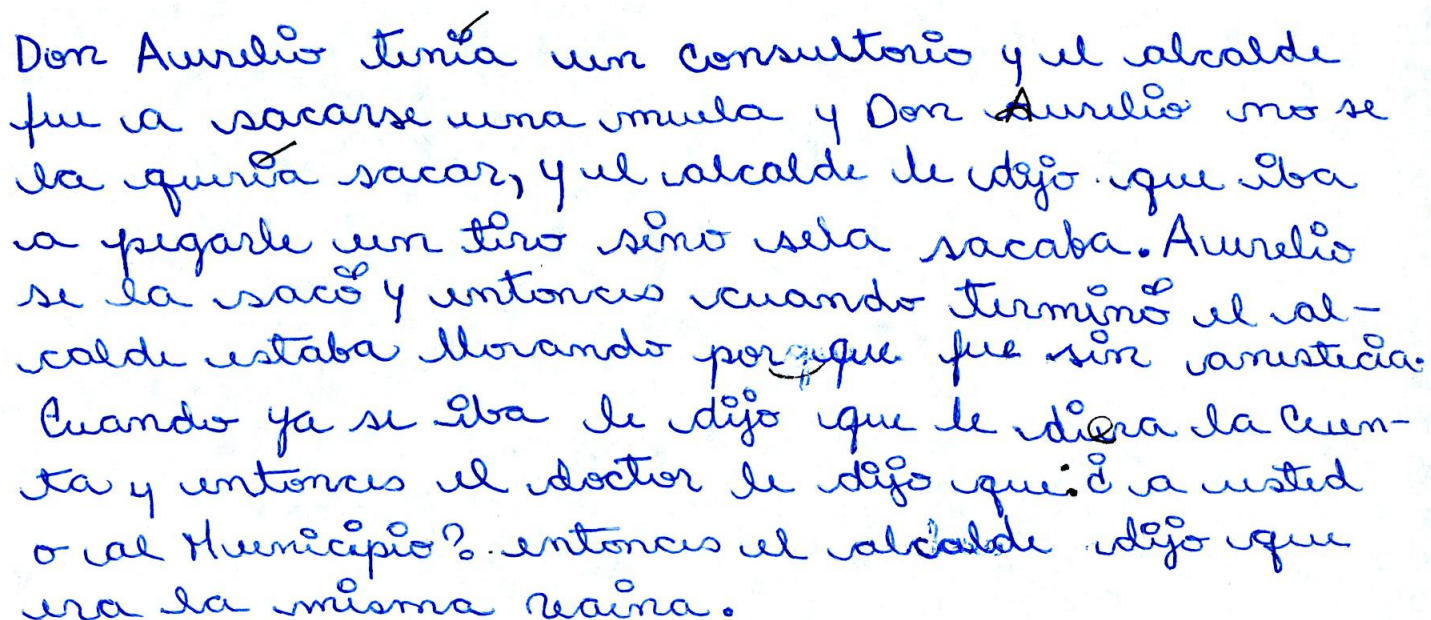 Don Aurelio tenía un consultorio y el alcalde
fue a sacarse una muela y Don Aurelio no se
la quería sacar, y el alcalde le dijo que iba
a pegarle un tiro sino sela sacaba. Aurelio
se la sacó y entonces cuando terminó el al-
calde estaba llorando porque fue sin anestecia.
Cuando ya se iba le dijo que le diera la Cuen-
ta y entonces el doctor le dijo que: ¿ a usted
o al Municipio? entonces el alcalde dijo que
era la misma vaina.